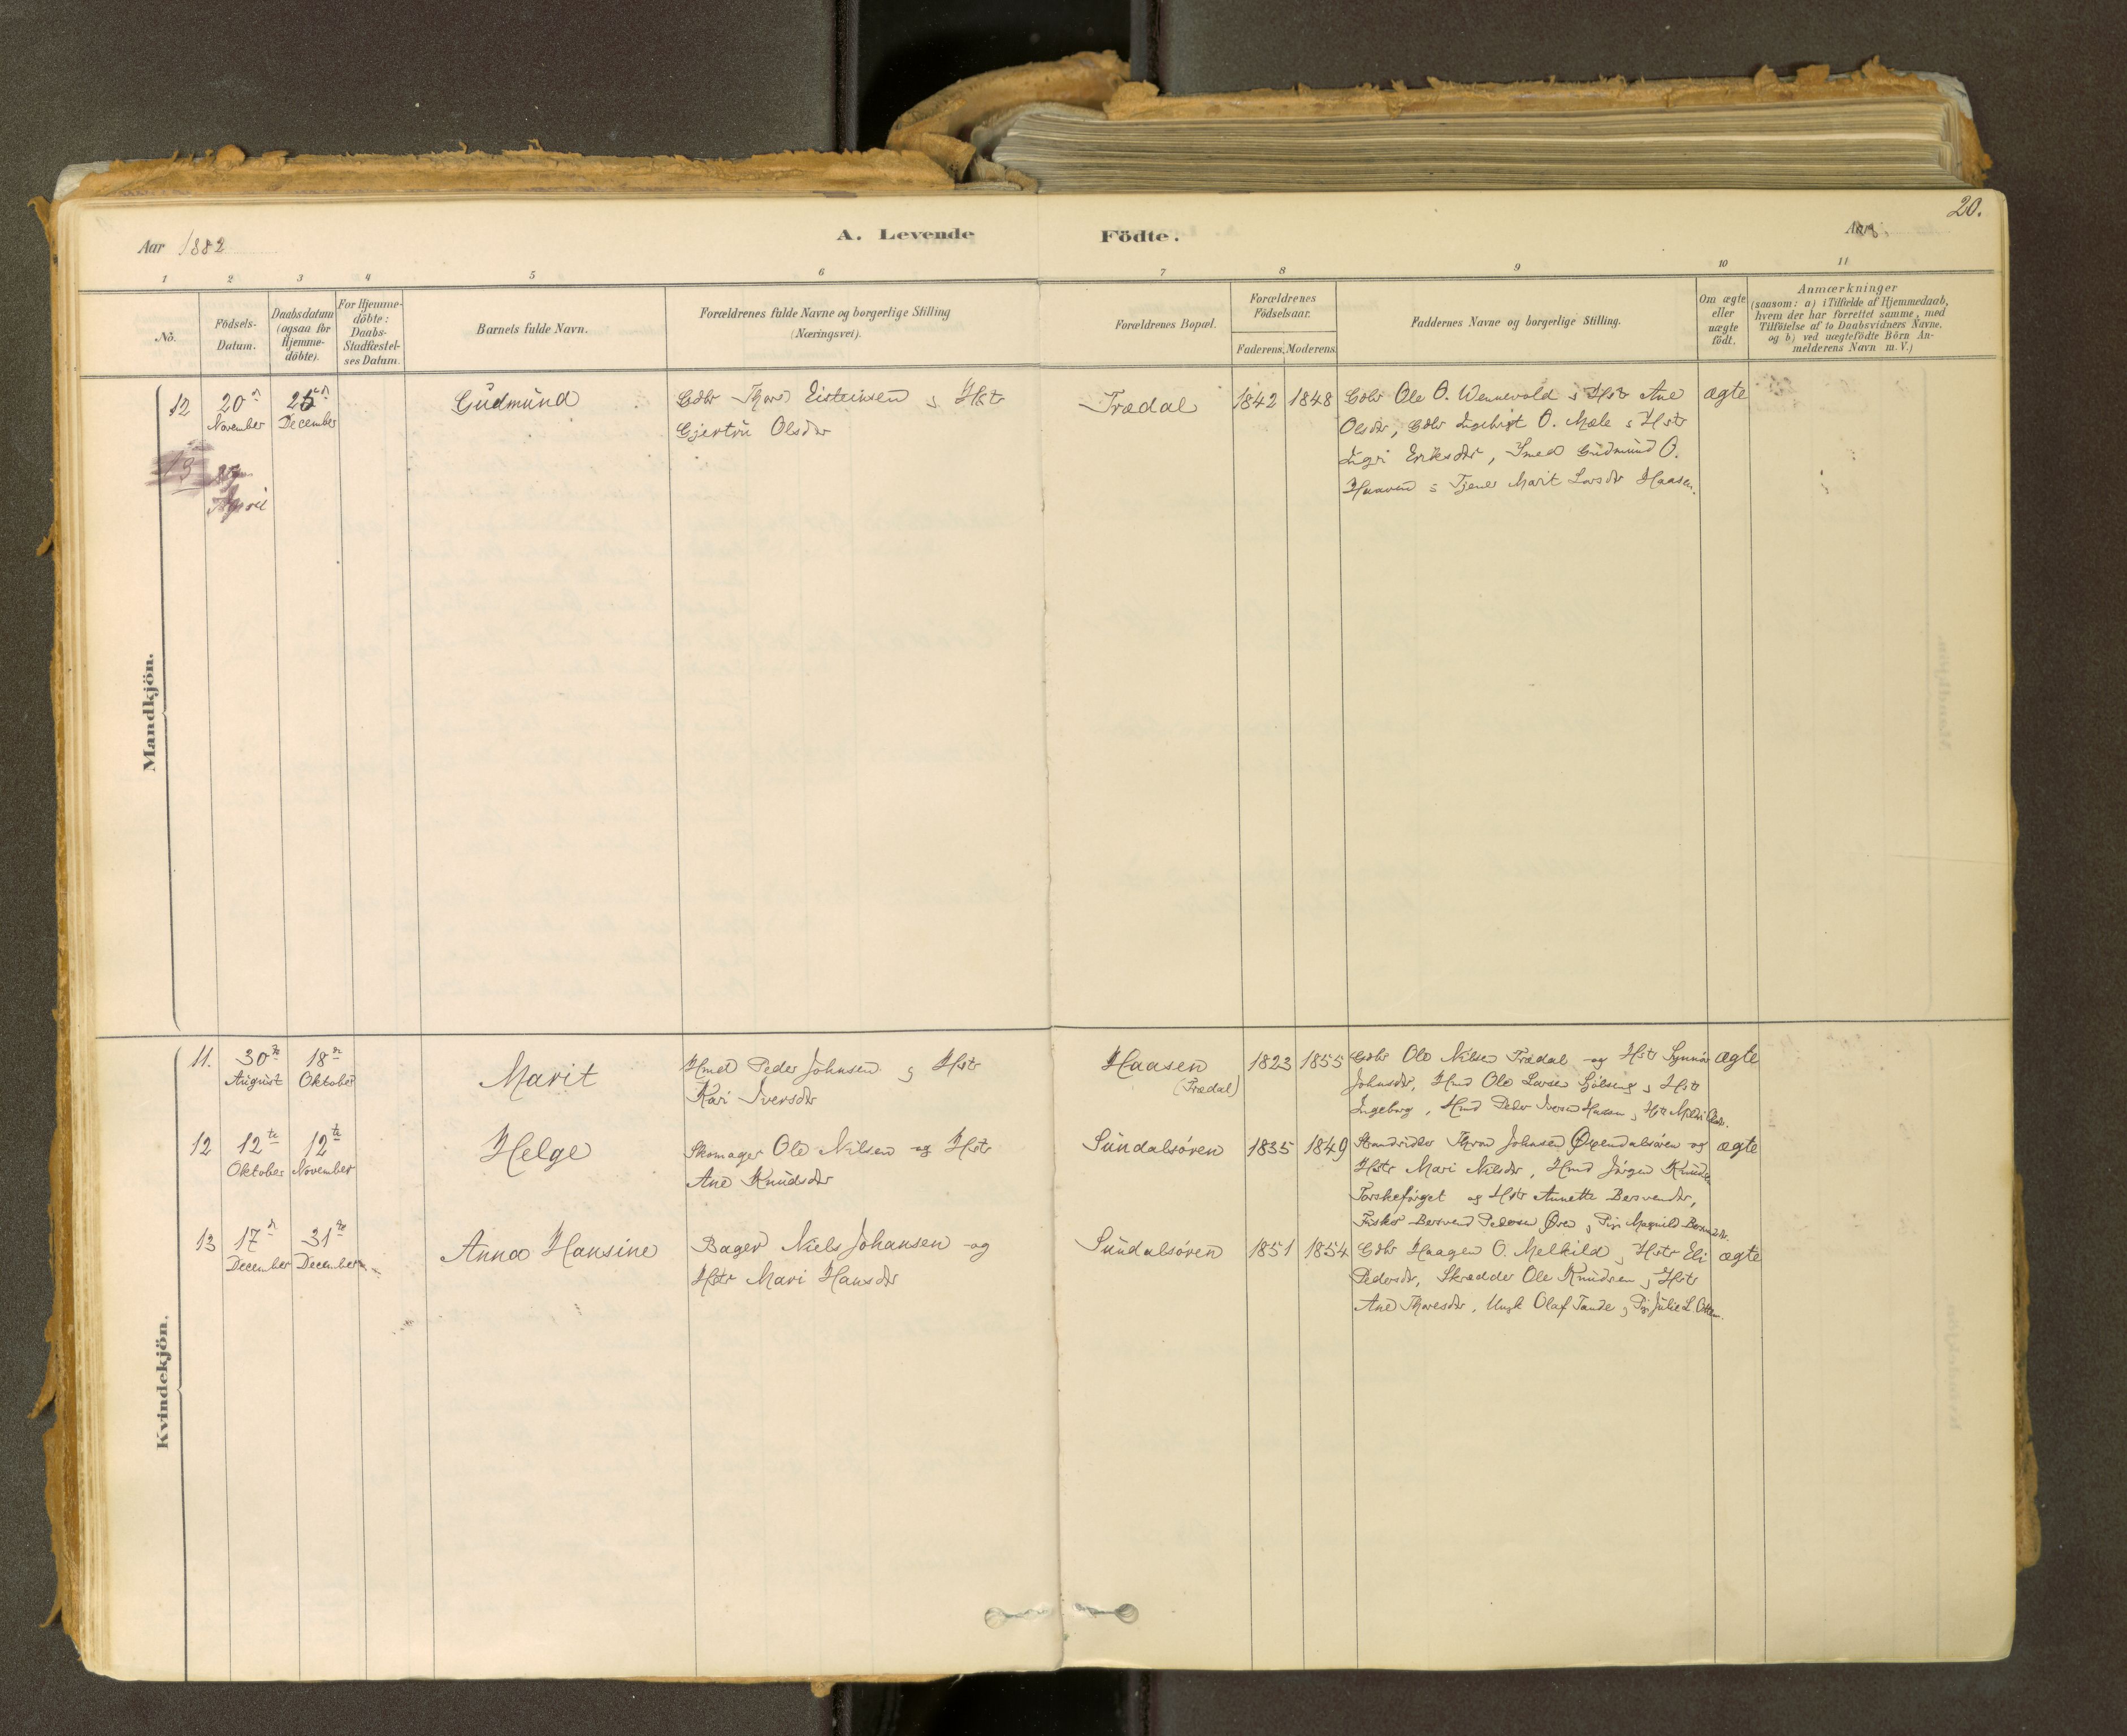 20.
Aar 1882
A. Levende Födte.
Aar
1 2 3 4 5 6 7 8 9 10 11
No.
Födsels-
Datum.
Daabsdatum
(ogsaa for
Hjemme-
döbte).
For Hjemme-
döbte:
Daabs-
Stadfæstel-
ses Datum.
Barnets fulde Navn.
Forældrenes fulde Navne og borgerlige Stilling
(Næringsvei).
Forældrenes Bopæl.
Forældrenes
Födselsaar.
Faderens. Moderens.
Faddernes Navne og borgerlige Stilling.
Om ægte
eller
uægte
födt.
Anmærkninger
(saasom: a) i Tilfælde af Hjemmedaab,
hvem der har forrettet samme, med
Tilföielse af to Daabsvidners Navne.
og b) ved uægtefödte Börn An-
melderens Navn m. V.)
Mandkjön.
12
20n
November
25n
December
Gudmund
Gdbr Thore Eisteinsen g Hstr
Gjertru Olsdr
Trædal
1842 1848
Gdbr Ole O. Wennevold g Hstr Ane
Olsdr, Gdbr Ingebrigt O. Mæle g Hstr
Ingri Eriksdr, Smed Gudmund O.
g Tjener Marit Larsdr Haasen.
ægte
13
April
Kvindekjön.
11.
30te
August
18n
Oktober
Marit
Hmd Peder Johnsen g Hstr
Kari Iversdr
Haasen
(Trædal)
1823 1855
Gdbr Ole Nilsen Trædal og Hstr Synnøv
Johnsdr, Hmd Ole Larsen g Hstr
Ingeborg, Hmd Peder Iversen Haasen g Hstr
ægte
12
12te
Oktober
12te
November
Helge
Skomager Ole Nilsen og Hstr
Ane Knudsdr
Sundalsøren
1835 1849
Strandsidder Thron Johnsen Øxendalsøren og
Hstr Mari Nilsdr, Hmd Jørgen Knudsen
og Hstr Annette Bersvendsdr,
Fisker Bersvend Pedersen Øren g Pige Magnild
ægte
13
17n
December
31te
December
Anna Hansine
Bager Niels Johansen og
Hstr Mari Hansdr
Sundalsøren
1851 1854
Gdbr Haagen O. Melkild g Hstr Eli
Pedersdr, Skrædder Ole Knudsen g Hstr
Ane Thoresdr, Ungk Olaf Tande g Pige Julie L.
ægte